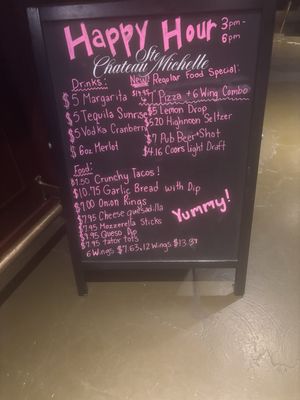 Happy Hour 3pm-6pm
Ste
Chateau Michelle
Drinks:
$5 Margarita
$5 Tequila Sunrise
$5 Vodka Cranberry
$6oz Merlot
New! Regular Food Special:
Pizza + 6 Wing Combo
$5 Lemon Drop
$5.20 Highnoon Seltzer
$7 Pub Beer + Shot
$4.16 Coors Light Draft
Food:
$1.50 Crunchy Tacos!
$10.75 Garlic Bread with Dip
$7.00 Onion Rings
$7.95 Cheese quesadilla
$7.45 Mozzerella Sticks
$9.95 Queso Dip
$7.95 tator tots
6 Wings $7.63, 12 Wings $13.89
Yummy!